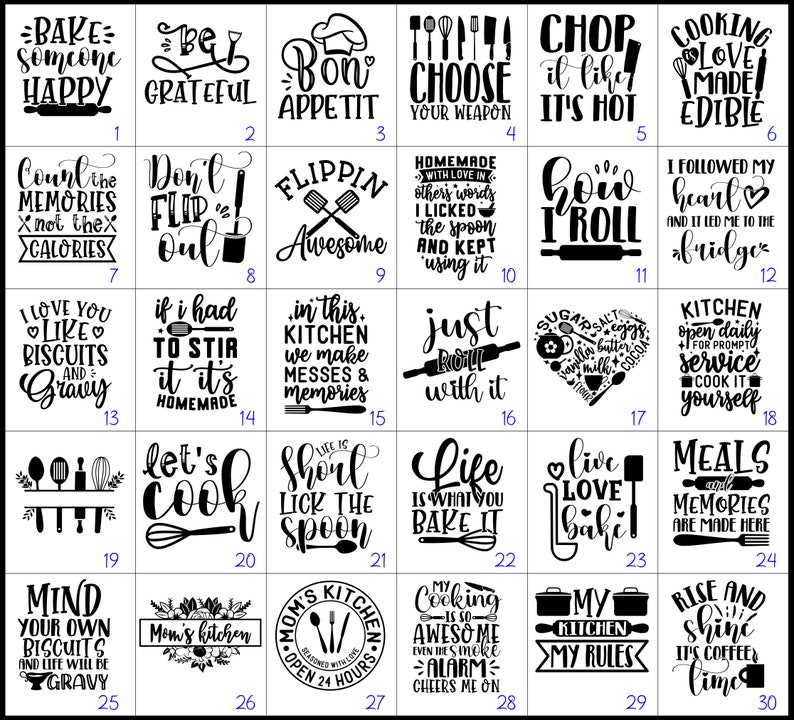 BAKE
someone
HAPPY
1
Be
GRATEFUL
2
Bon
APPETIT
3
CHOOSE
YOUR WEAPON
4
CHOP
it like
IT'S HOT
5
COOKING
is LOVE
MADE
EDIBLE
6
Count the
MEMORIES
not the
CALORIES
7
Don't
FLIP
out
8
FLIPPIN
Awesome
9
HOMEMADE
WITH LOVE IN
others words
I LICKED
the spoon
AND KEPT
using it
10
how
I ROLL
11
I FOLLOWED MY
heart
AND IT LED ME TO THE
fridge
12
I LOVE YOU
LIKE
BISCUITS
AND
Gravy
13
if i had
TO STIR
it it's
HOMEMADE
14
in this
KITCHEN
we make
MESSES &
memories
15
just
ROLL
with it
16
SUGAR SALT eggs
vanilla butter COCOA
milk
17
KITCHEN
open daily
FOR PROMPT
service
COOK IT
yourself
18
19
let's
cook
20
LIFE IS
Short
LICK THE
spoon
21
Life
IS WHAT YOU
BAKE IT
22
live
LOVE
bake
23
MEALS
and
MEMORIES
ARE MADE HERE
24
MIND
YOUR OWN
BISCUITS
AND LIFE WILL BE
GRAVY
25
Mom's kitchen
26
MOM'S KITCHEN
SEASONED WITH LOVE
OPEN 24 HOURS
27
MY
Cooking
IS SO
AWESOME
EVEN THE smoke
ALARM
CHEERS ME ON
28
MY
KITCHEN
MY RULES
29
RISE AND
shine
IT'S COFFEE
time
30